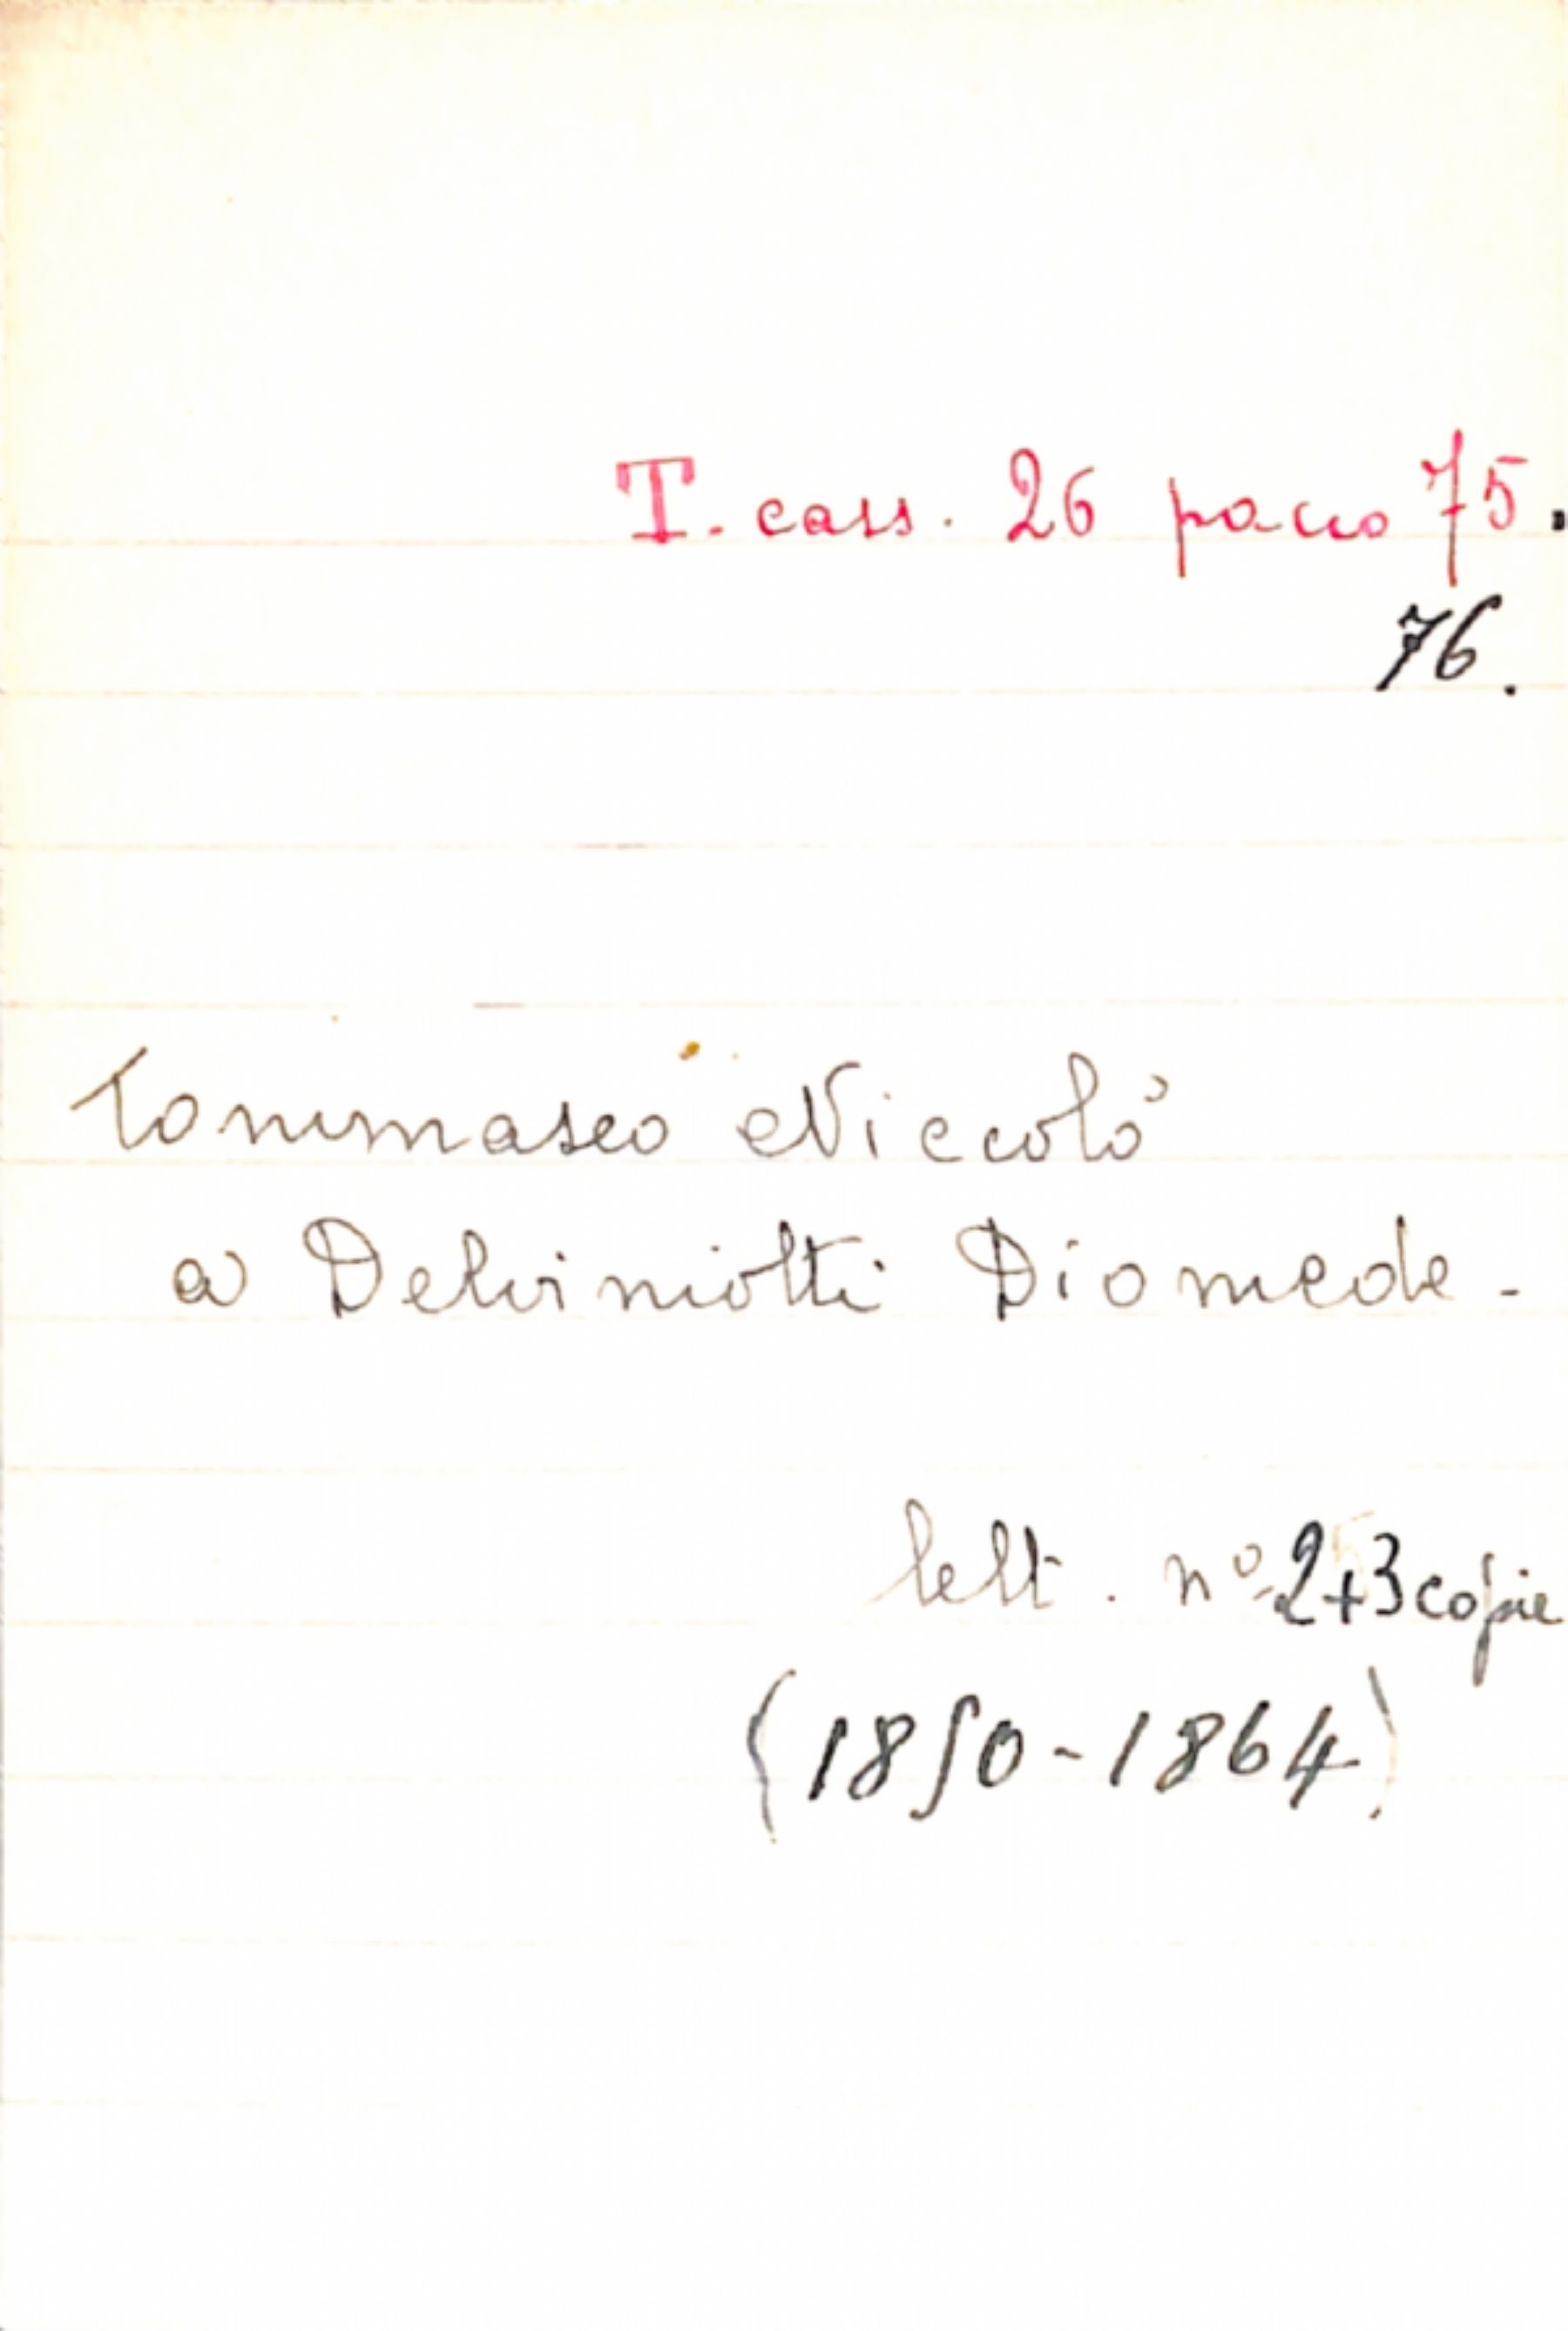 T. cass. 26 pacco 75.
76.
Tommaseo Niccolò
a Delviniotti Diomede -
lett. nº 2+3 copie
(1850-1864)